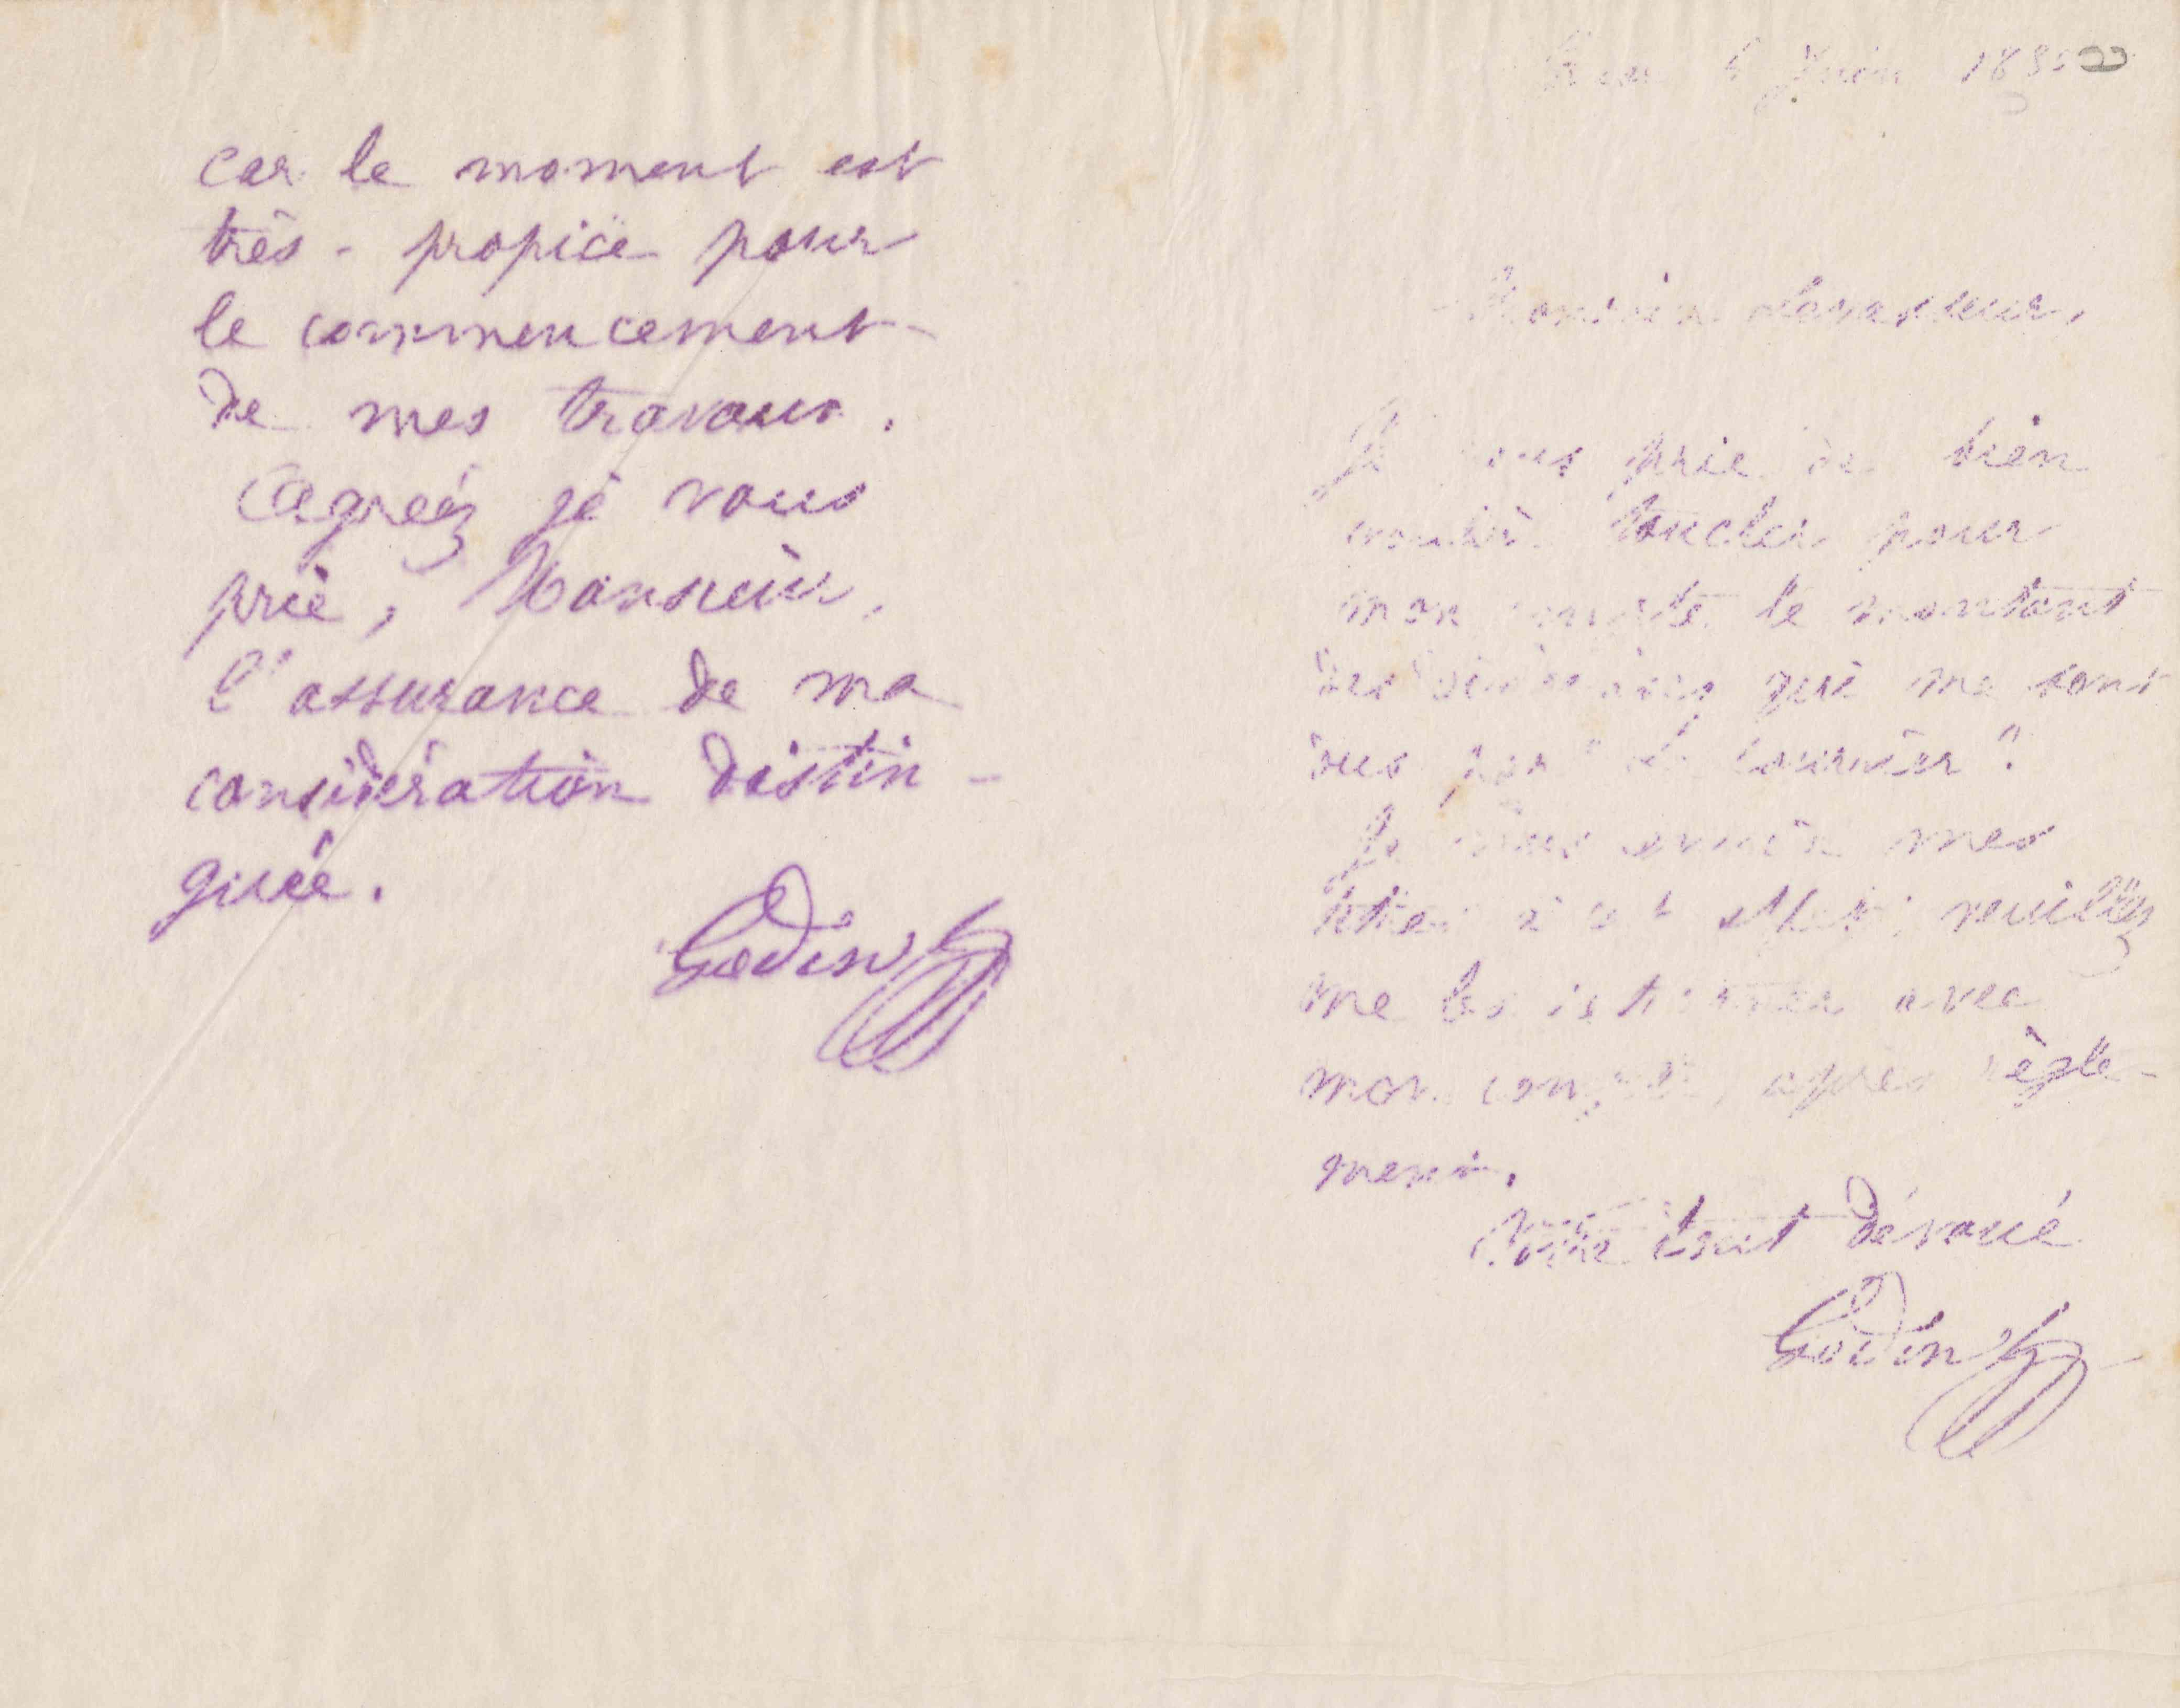 car le moment est
très-propice pour
le commencement
de mes travaux.
Agréez je vous
prie, Monsieur,
l'assurance de ma
considération distin-
guée.
Godin
5 Juin 188
Monsieur Levasseur,
Je vous prie de bien
vouloir toucher pour
mon compte le montant
des qui me sont
dus par "le Courrier".
Je vous envoie mes
à cet effet; veuillez
me les retourner avec
mon compte, après règle-
ment.
Votre tout dévoué
Godin